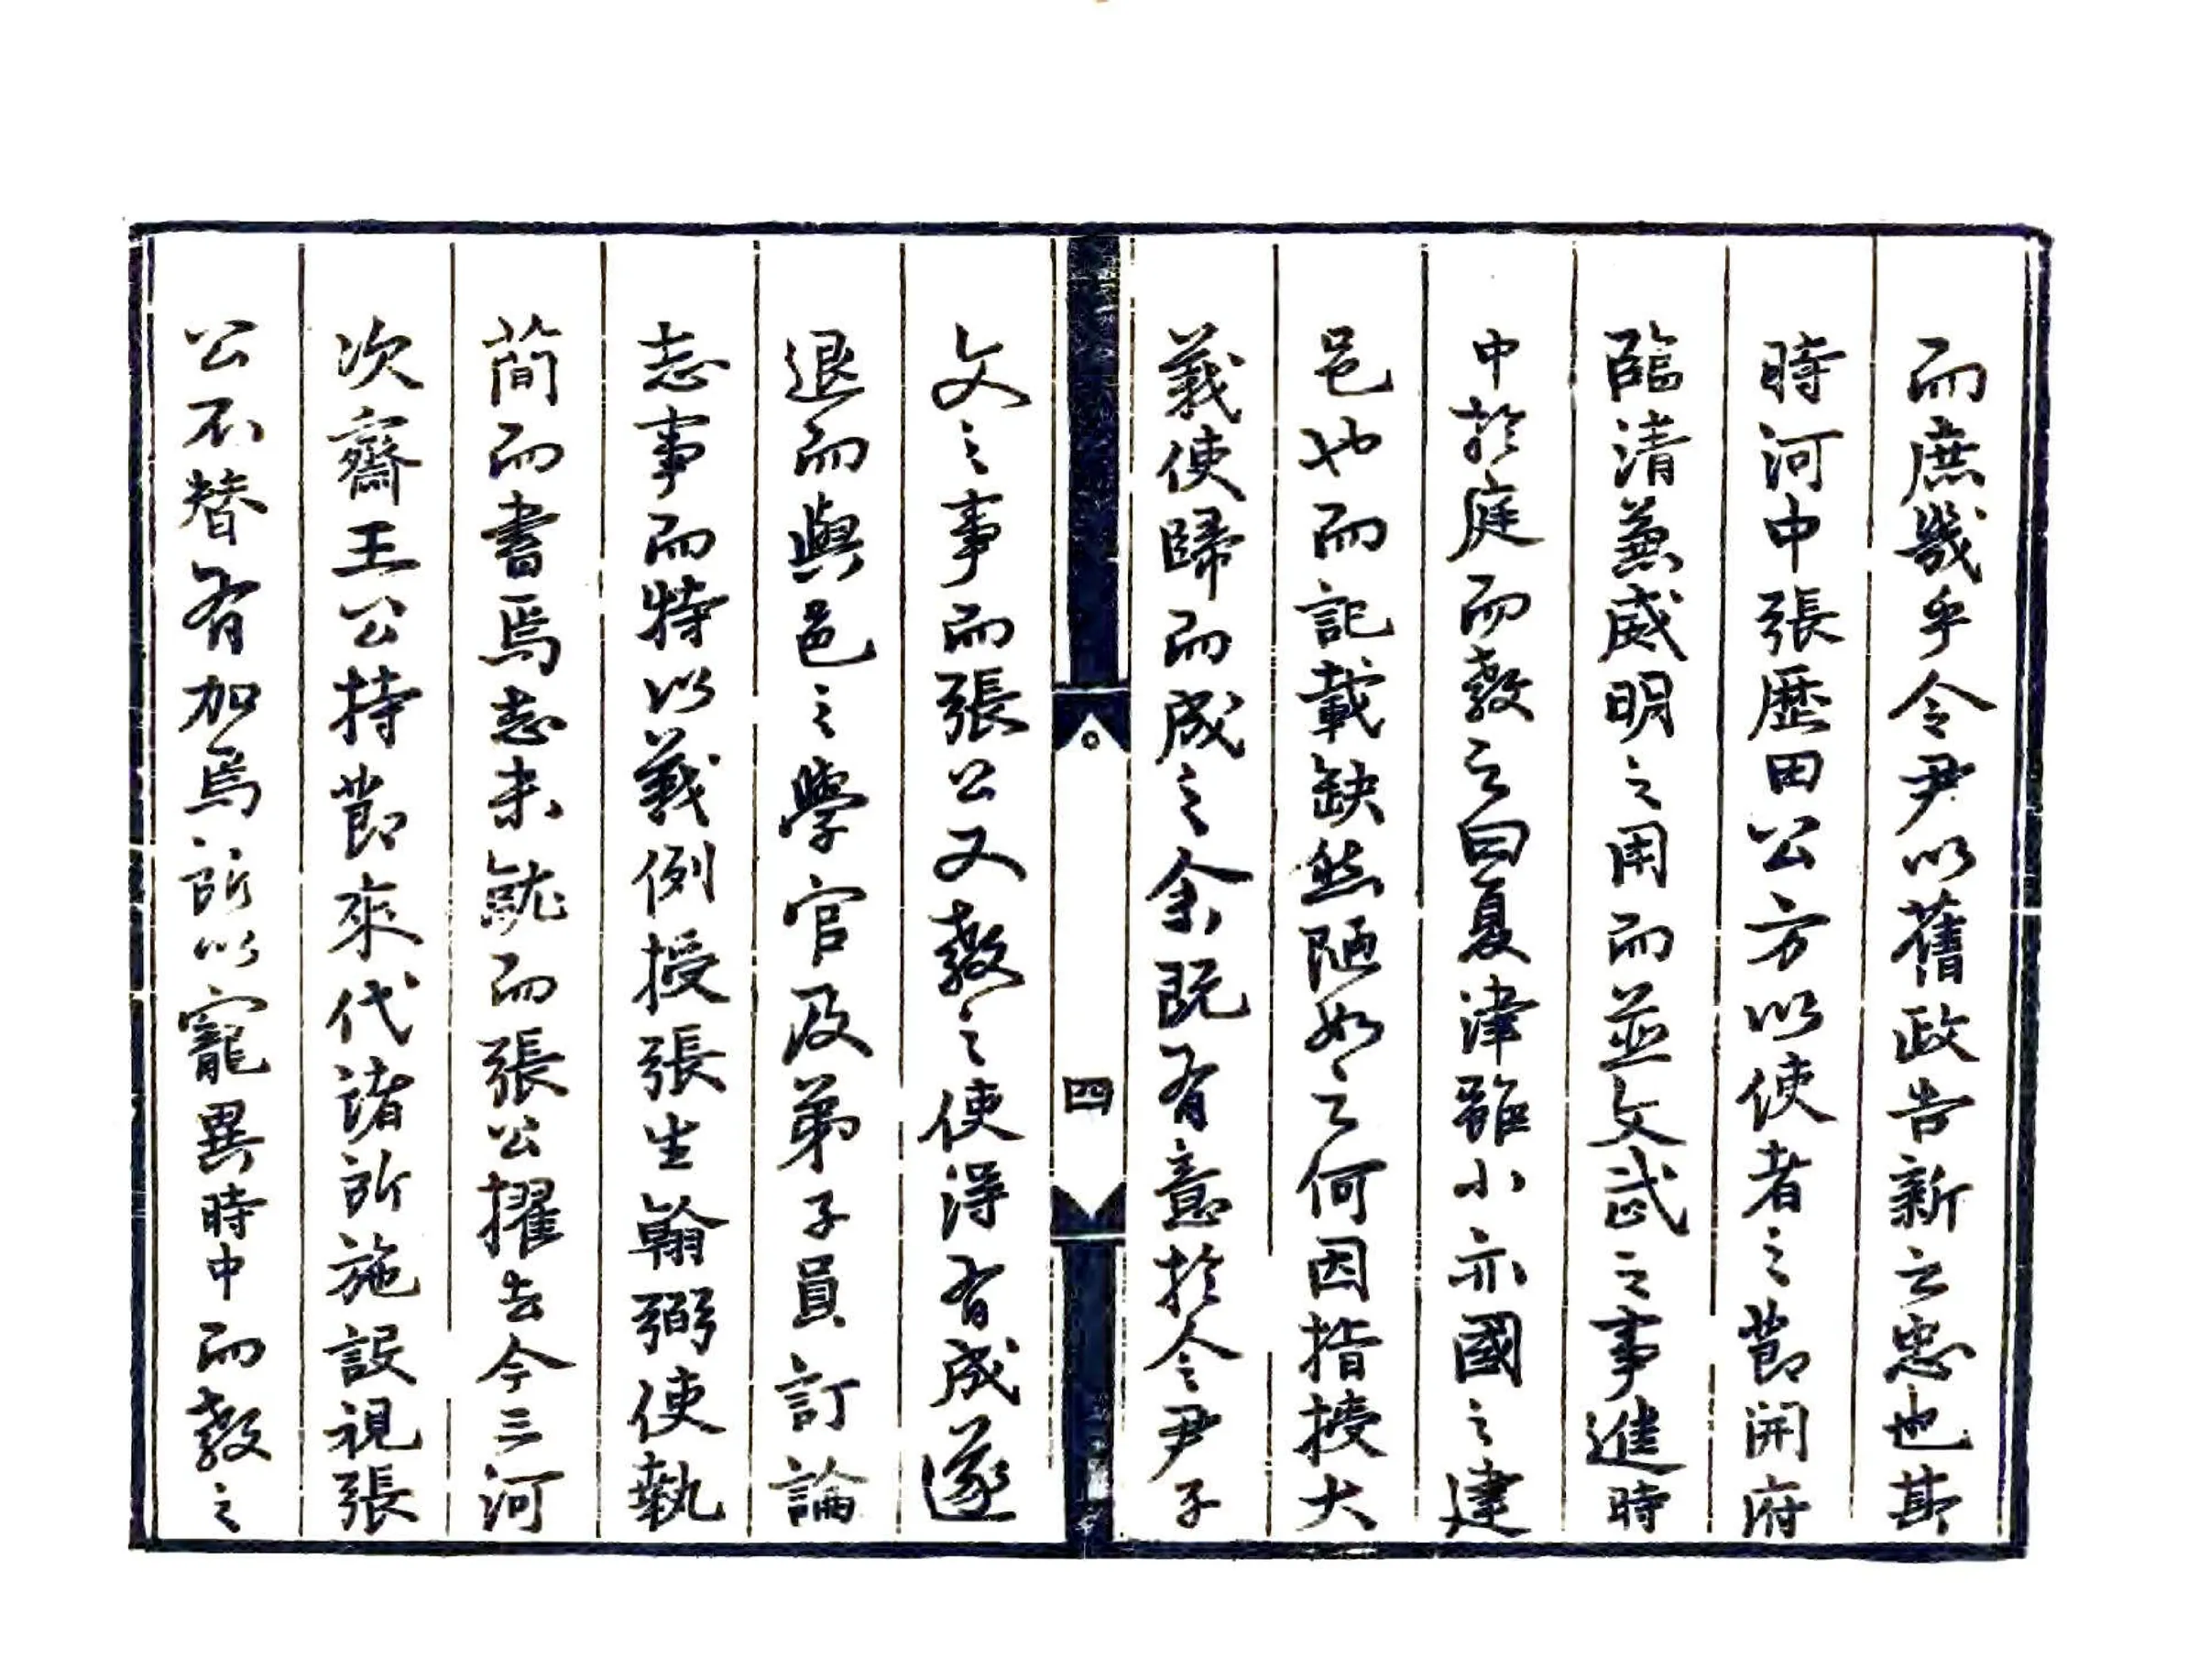 而庶幾乎令尹以舊政告新云忠也斯
時河中張歷田公方以使者之節開府
臨清兼威明之用而並文武之事進時
中於庭而教之曰夏津雖小亦國之建
邑也而記載缺然陋如之何因指授大
義使歸而成之余既有意於令尹子
四
文之事而張公又教之使得有成遂
退而與邑之學官及弟子員訂論
志事而特以義例授張生翰弼使執
簡而書焉志未就而張公擢去今三河
次齋王公持節來代諸所施設視張
公不替有加焉所以寵異時中而教之